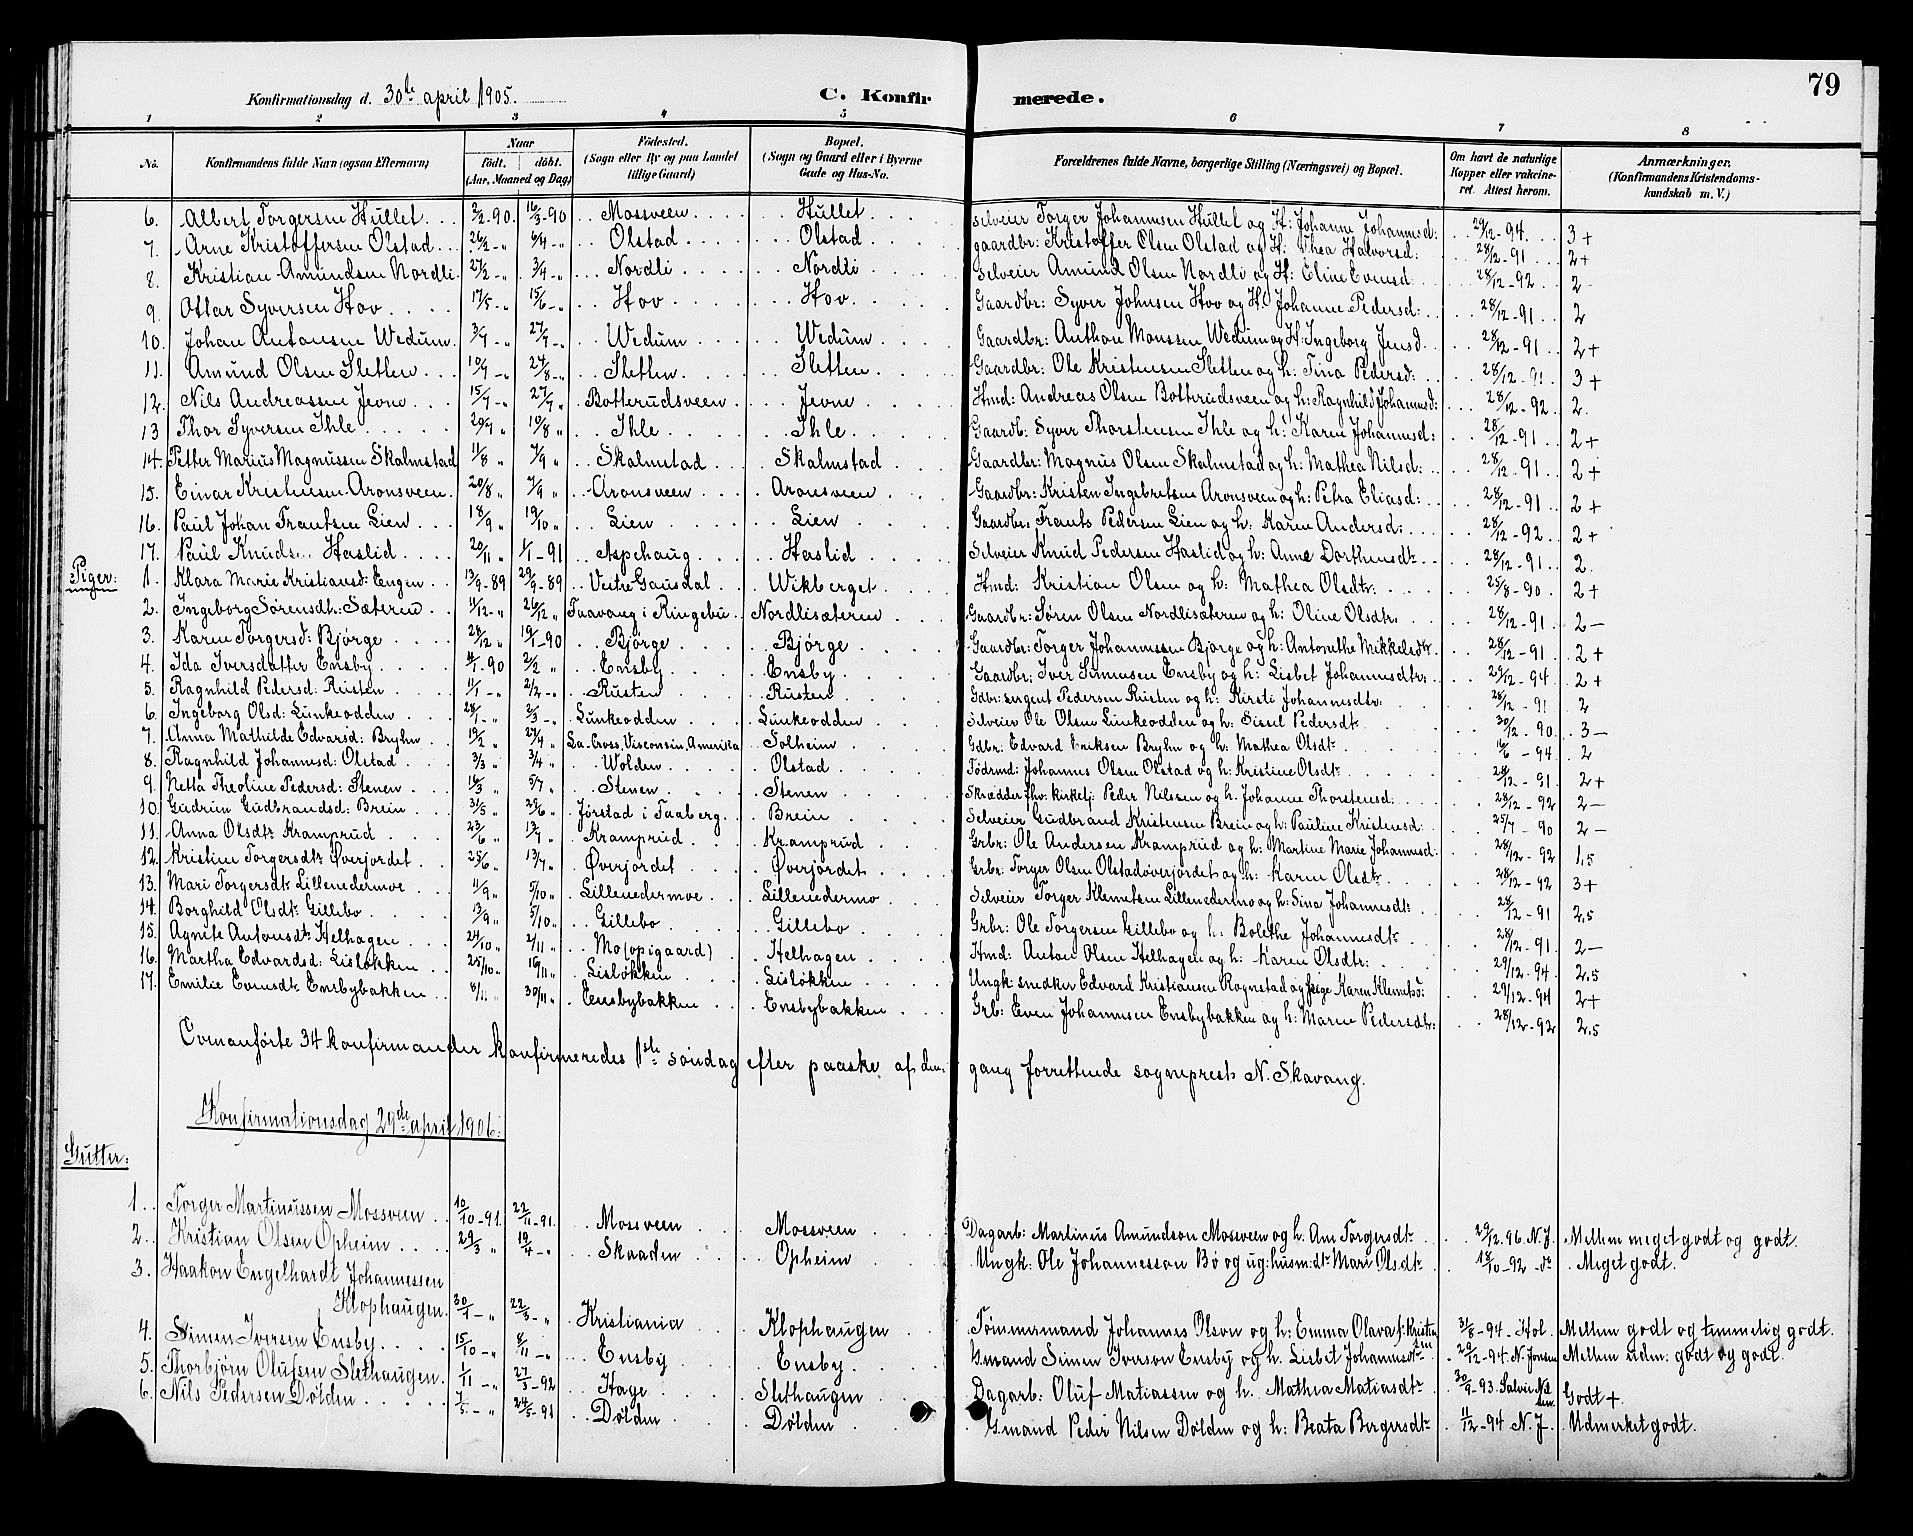 79
Konfirmationsdag d. 30te april 1905. C. Konfirmerede.
1 2 3 4 5 6 7 8
No. Konfirmandens fulde Navn (ogsaa Efternavn) Naar født. døbt. (Aar, Maaned og Dag) Fødested. (Sogn eller By og paa Landet tillige Gaard) Bopæl. (Sogn og Gaard eller i Byerne Gade og Hus-No. Forældrenes fulde Navne, borgerlige Stilling (Næringsvei) og Bopæl. Om havt de naturlige Kopper eller vaccineret. Attest herom. Anmærkninger. (Konfirmandens Kristendomskundskab m. V.)
6. Albert Torgersen Hullet 2/2-90. 16/3-90 Mossveen Hullet Selveier Torger Johannesen Hullet og H: Johanne Johannesd: 29/12-94. 3+
7. Arne Kristoffersen Olstad 6/4 -„ Olstad Olstad gaardbr: Kristoffer Olsen Olstad og H: Thea Halvorsd: 28/12-91 2+
8. Kristian Amundsen Nordli 27/2 -„ 3/4 -„ Nordli Nordli Selveier Amund Olsen Nordli og H: Eline Evensd 28/12-92 2
9. Ottar Syversen Hov 17/5 -„ 15/6 -„ Hov Hov Gaardbr: Syver Johnsen Hov og H: Johanne Pedersd: 28/12-91 2
10. Johan Antonsen Wedum 3/7 -„ 27/7 -„ Wedum Wedum Gaardbr: Anthon Monssen Wedum og H: Ingeborg Jensd 28/12-91 2+
11. Amund Olsen Sletten 10/7 -„ 24/8 -„ Sletten Sletten Gaardbr: Ole Kristensen Sletten og h: Tina Pedersd: 28/12-91 3+
12. Nils Andreassen Jevne 15/7 -„ 27/7 „ Botterudsveen Jevne Hmd: Andreas Olsen Botterudsveen og h: Ragnhild Johannesd: 28/12-92 2.
13 Thor Syversen Ihle 29/7 „ 10/8 „ Ihle Ihle Gaardb: Syver Thorstensen Ihle og h: Karen Johannesd: 28/12-91 2+
14. Petter Marius Magnussen Skalmstad 11/8 „ 7/9 „ Skalmstad Skalmstad Gaardbr: Magnus Olsen Skalmstad og h: Mathea Nilsd: 28/12-91 2+
15. Einar Kristensen Aronsveen 20/8 „ 7/9 „ Aronsveen Aronsveen Gaardbr: Kristen Ingebretsen Aronsveen og h: Petra Eliasd: 28/12-91 2+
16. Paul Johan Frantsen Lien 18/9 „ 19/10 „ Lien Lien Gaardbr: Frants Pedersen Lien og h: Karen Andersd: 28/12-92 2+
17. Paul Knudsen Haslid 20/11 „ 1/1-91 Aspehaug Haslid Selveier Knud Pedersen Haslid og h: Anne Dorthe 28/12-91 2.
Piger:
1. Klara Marie Kristiansd: Engen 13/9-89 29/9-89 Vestre Gausdal Wikberget Hmd: Kristian Olsen og h: Mathea Olsdtr: 25/8-90 2+
2. Ingeborg Sørensdt: Sæteren 11/12 -„ 26/12 „ Faavang i Ringebu Nordlisæteren Gaardbr: Søren Olsen Nordlisæteren og h: Oline Olsdtr. 28/12-91 2-
3. Karen Torgersd: Bjørge 28/12 „ 19/1-90 Bjørge Bjørge Gaardbr: Torger Johannessen Bjørge og h: Antonethe Mikkelsdtr 28/12-91 2+
4. Ida Iversdatter Ensby 4/1-90 2/2 „ Ensby Ensby Gaardbr: Iver Simensen Ensby og h: Lisbet Johannesdtr: 29/12-94 2+
5. Ragnhild Pedersd: Rusten 11/1 -„ 2/2 -„ Rusten Rusten Gdbr: sergent Pedersen Rusten og h: Kirsti Johannesdtr: 28/12-91 2
6. Ingeborg Olsd: Lunkeodden 28/1 -„ 2/3 -„ Lunkeodden Lunkeodden Selveier Ole Olsen Lunkeodden og h: Sissel Pedersdt 30/12-90 3-
7. Anna Mathilde Edvarsd: Bryhn 19/2 „ 27/4 „ La-Cross, Visconsin, Amerika Solheim Gdbr: Edvard Eriksen Bryhn og h: Mathea Olsdt 16/6-94 2
8. Ragnhild Johannesd: Olstad 3/3 „ 3/4 „ Wolden Olstad Fødrmd: Johannes Olsen Olstad og h: Kristine Olsdt 28/12-91 2+
9. Netta Theoline Pedersd: Stenen 16/3 „ 5/7 „ Stenen Stenen Skrædder fhv: kirketj: Peder Nilssen og h: Johanne Thorstensd: 28/12-92 2-
10. Gudrun Gudbrandsd: Brein 31/5 „ 29/6 „ Jørstad i Faaberg Brein Selveier Gudbrand Kristensen Brein og h: Pauline Kristensd: 25/7-90 2-
11. Anna Olsdtr Kramprud 23/6 „ 13/7 „ Kramprud Kramprud Grbr: Ole Andersen Kramprud og h: Martine Marie Johannesd: 28/12-92 1,5
12. Kristine Torgersdtr Øverjordet 25/6 „ 13/7 „ Øverjordet Øverjordet Grbr: Torger Olsen Olstadøverjordet og h: Karen Olsdtr 28/12-92 3+
13. Mari Torgersdtr Lillenedermoe 11/9 „ 5/10 „ Lillenedermoe Lillenedermo Selveier Torger Klemetsen Lillenedermo og h: Sina Johannesdtr 28/12-91 2,5
14. Borghild Olsdtr Gillebo 13/9 „ 5/10 „ Gillebo Gillebo Grbr: Ole Torgersen Gillebo og h: Bolethe Johannesdtr 28/12-91 2-
15. Agnete Antonsdtr Helhagen 24/10 „ 2/11 „ Mo (opigaard) Helhagen Hmd: Anton Olsen Helhagen og h: Karen Olsdtr: 29/12-94 2,5
16. Martha Edvardsd: Lisløkken 25/10 „ 16/11 „ Lisløkken Lisløkken Ungk: snedker Edvard Kristiansen Rognstad og pige Karen Klemetsd: 29/12-94 2+
17. Emilie Evensdtr Ensbybakken 8/11 „ 30/11 „ Ensbybakken Ensbybakken Grb: Even Johannesen Ensbybakken og h: Maren Pedersdtr: 28/12-92 2,5
Ovenanførte 34 konfirmander konfirmeredes 1ste søndag efter paaske af den gang forrettende sogneprest N. Skavang.
Konfirmationsdag 29de april 1906:
Gutter:
1. Torger Martinussen Mossveen 10/10-91. 22/11-91. Mossveen Mossveen Dagarb: Martinus Amundson Mosveen og h. Ane Torgersdtr 29/12.96. N.J. Mellem meget godt og godt.
2. Kristian Olsen Opheim 29/3 „ 19/4 -„ Skaaden Opheim Ungk: Ole Johannesson Bø og ug: husm: dt: Mari Olsdtr 18/10-92 do Meget godt.
3. Haakon Engelhardt Johannessen
Klophaugen 30/1 -„ 22/3 -„ Kristiania Klophaugen Tømmermand Johannes Olson og h: Emma Olava f: Kristiansen 31/8-94. Hol. Mellem godt og temmelig godt.
4. Simen Iversen Ensby 15/10 -„ 8/11 -„ Ensby Ensby Gmand Simen Iverson Ensby og h. Lisbet Johannesdtr 29/12-94. N. Jonsen Mellem udm: godt og godt.
5. Thorbjørn Olufsen Slethaugen 1/11 -„ 27/3-92 Hage Slethaugen Dagarb: Oluf Matiassen og h. Mathea Matiasdtr 30/9-93. Godt+
6. Nils Pedersen Dølden 7/5 -„ 24/5-91 Dølden Dølden Gmand Peder Nilsen Dølden og h: Beata Bergersdtr 11/12-94 N.J. Udmerket godt.